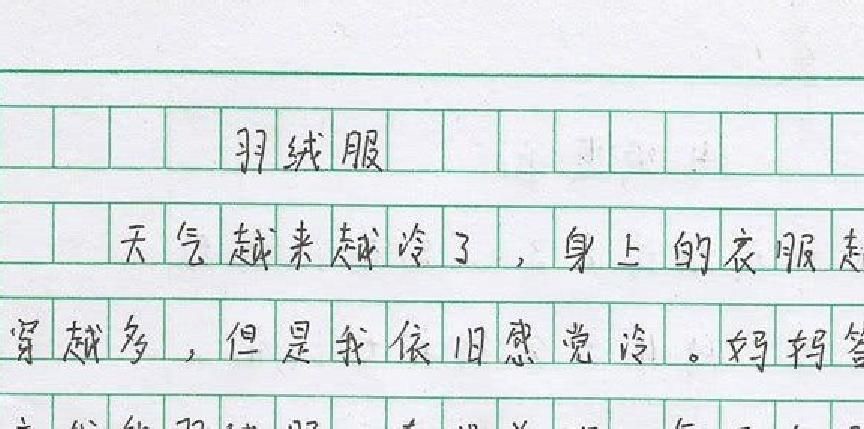 羽绒服
天气越来越冷了，身上的衣服越
穿越多，但是我依旧感觉冷。妈妈答